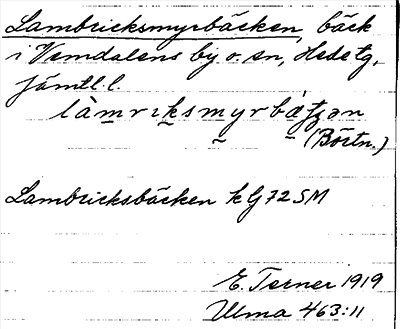 Lambricksmyrbäcken, bäck
i Vemdalens by o. sn, Hede tg,
Jämtl. l.
làmrıksmyrbä́tʒən
(Börtn.)
Lambricksbäcken k Gj 72 SM
E. Terner 1919
Ulma 463:11